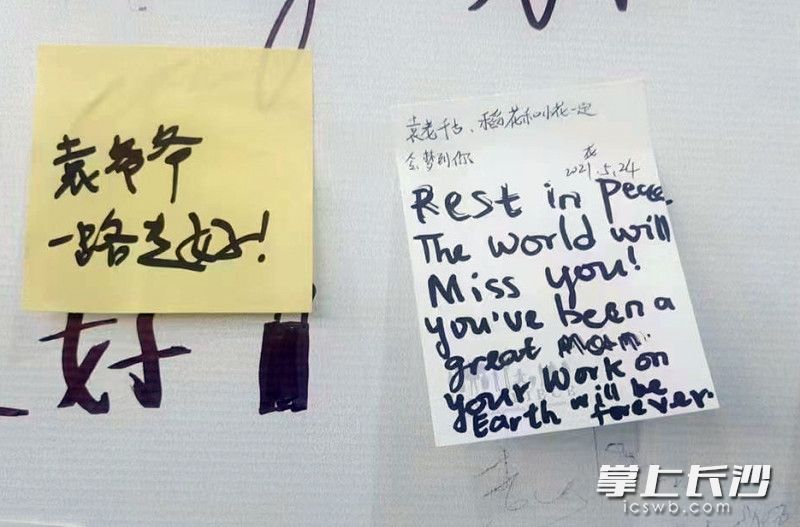 袁爷爷
一路走好!
好
袁老千古、稻花和小花一定
会梦到你
2021.5.24
Rest in Peace.
The world will
Miss you!
you've been a
great
your work on
Earth will be
forever.
掌上长沙
icswb.com